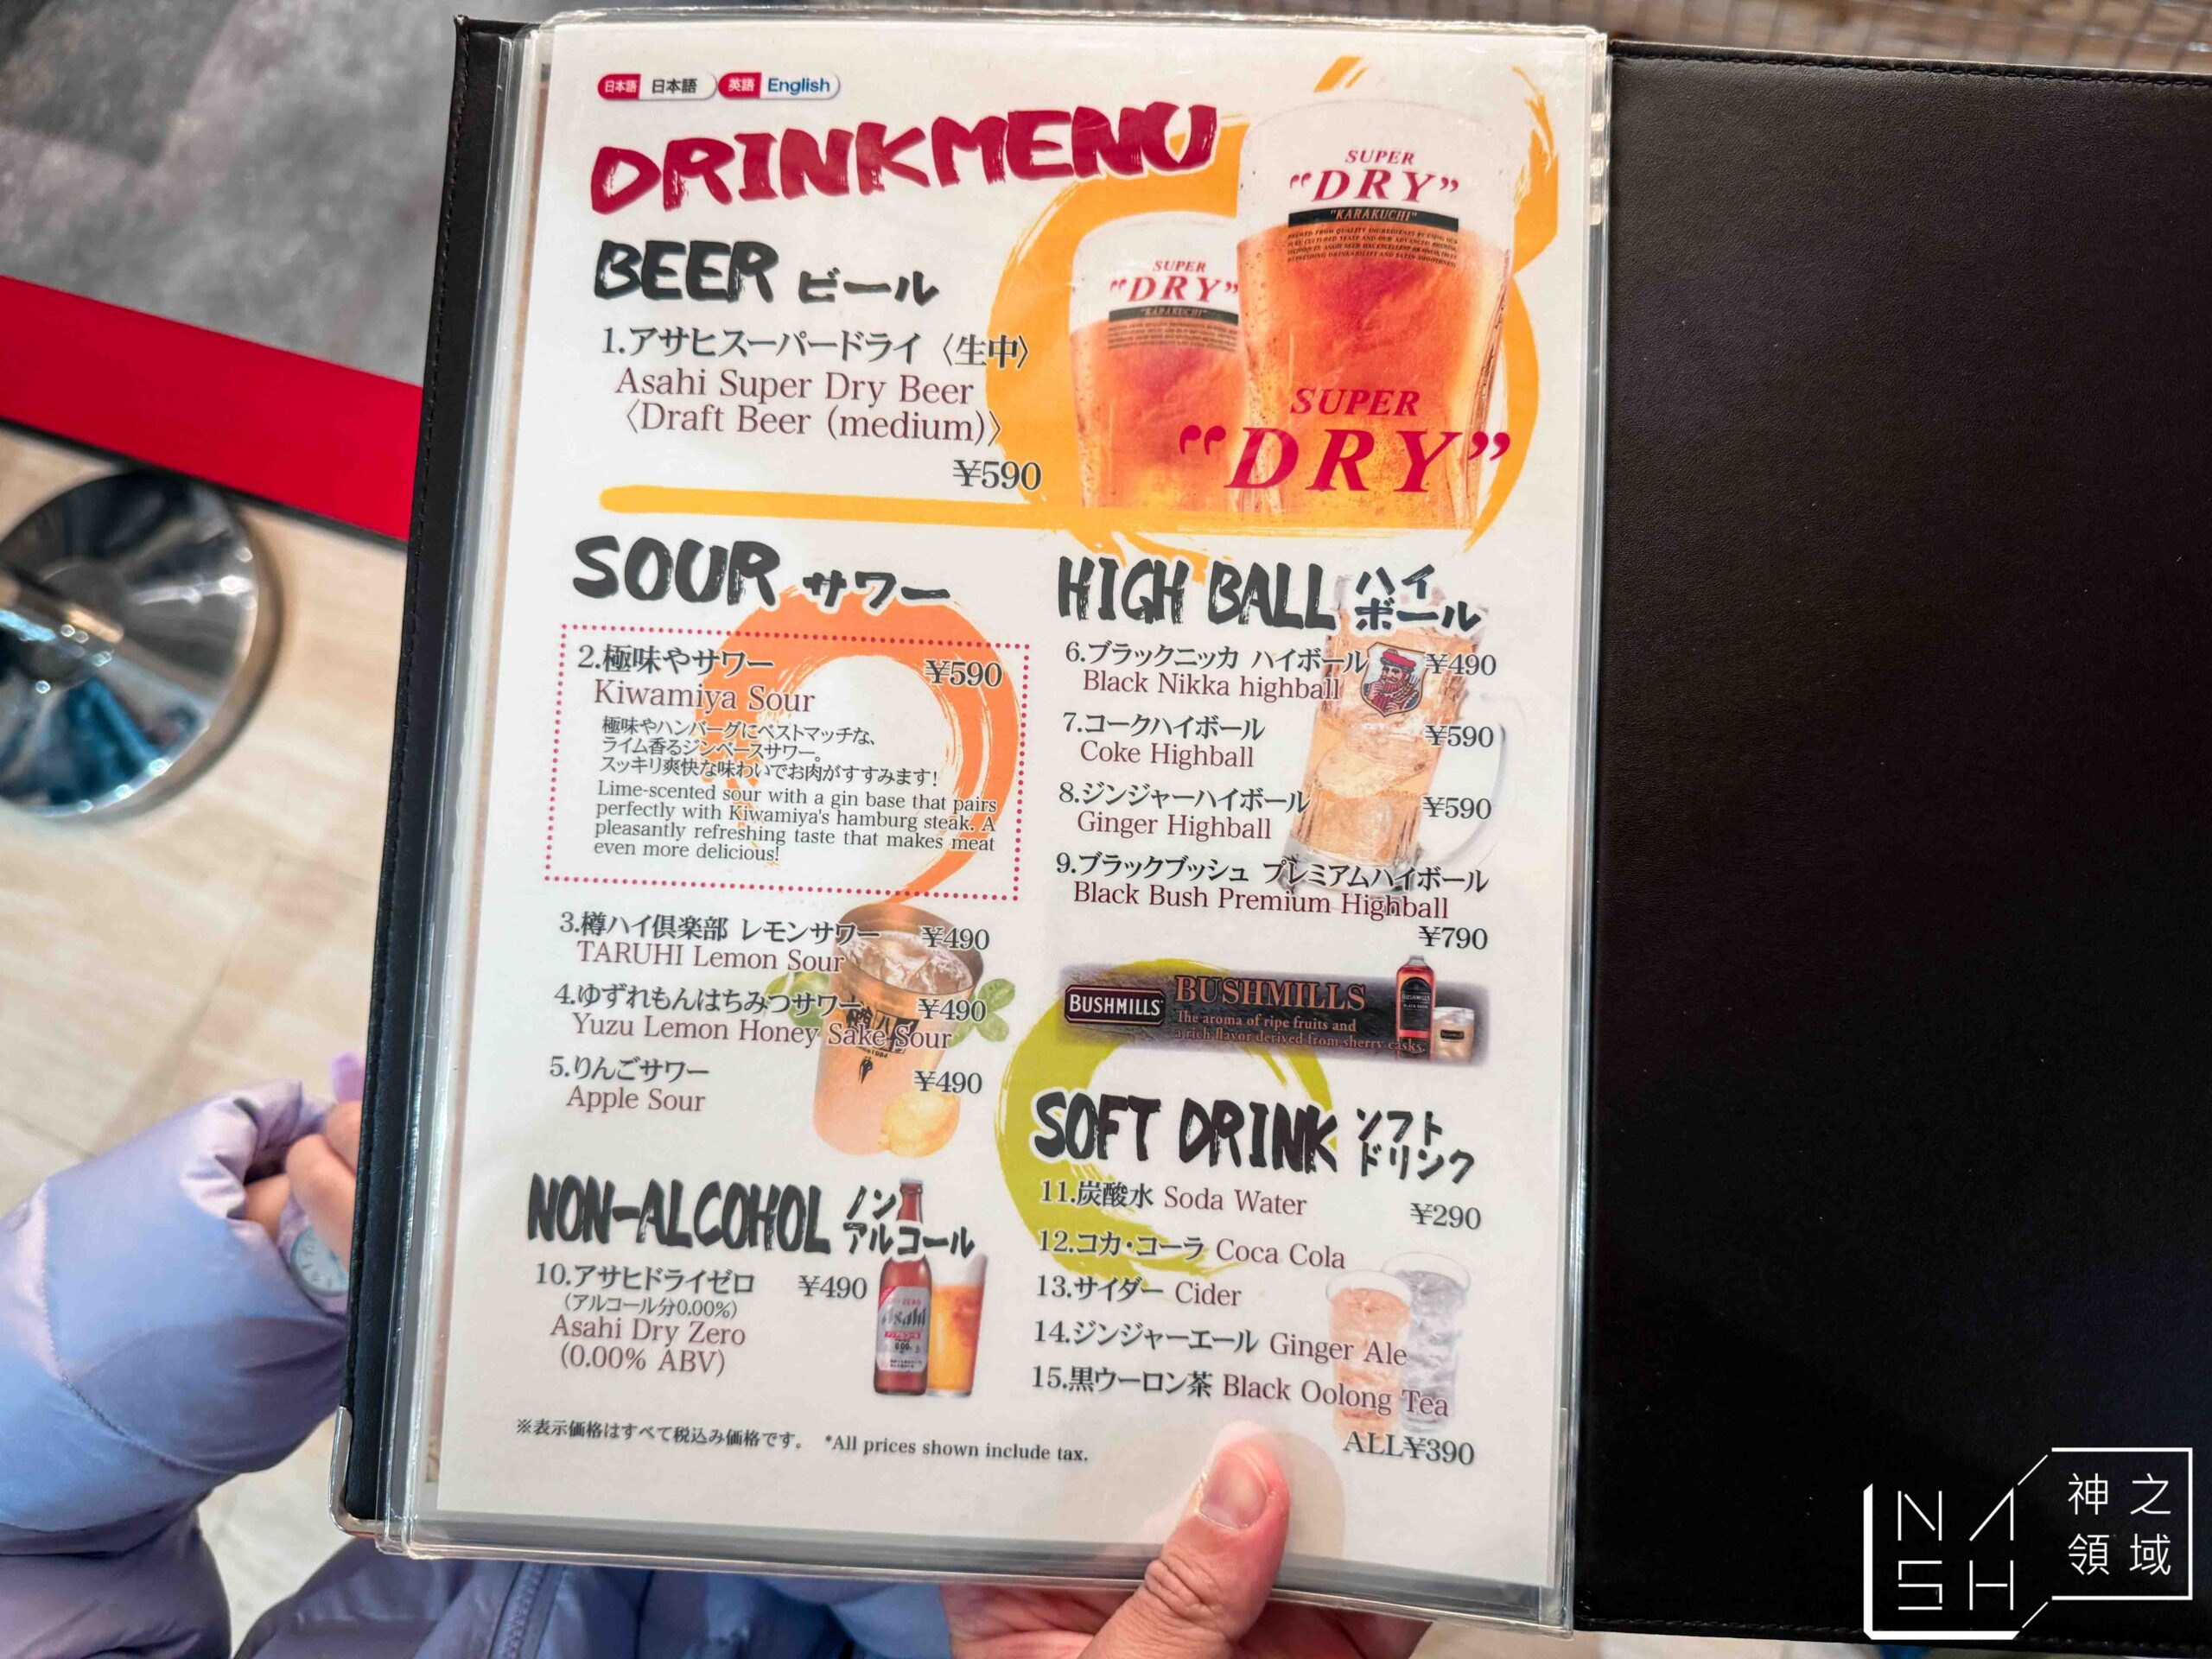 日本語 日本語 英語 English
DRINKMENU
SUPER
"DRY"
"KARAKUCHI"
SUPER
"DRY"
"KARAKUCHI"
SUPER
"DRY"
BEER ビール
1.アサヒスーパードライ〈生中〉
Asahi Super Dry Beer
〈Draft Beer (medium)〉
¥590
SOUR サワー
2.極味やサワー ¥590
Kiwamiya Sour
極味やハンバーグにベストマッチな、
ライム香るジンベースサワー。
スッキリ爽快な味わいでお肉がすすみます!
Lime-scented sour with a gin base that pairs
perfectly with Kiwamiya's hamburg steak. A
pleasantly refreshing taste that makes meat
even more delicious!
3.樽ハイ倶楽部 レモンサワー ¥490
TARUHI Lemon Sour
4.ゆずれもんはちみつサワー ¥490
Yuzu Lemon Honey Sake Sour
5.りんごサワー ¥490
Apple Sour
NON-ALCOHOL ノン
アルコール
10.アサヒドライゼロ ¥490
(アルコール分0.00%)
Asahi Dry Zero
(0.00% ABV)
Asahi
0.00%
HIGH BALL ハイ
ボール
6.ブラックニッカ ハイボール ¥490
Black Nikka highball
7.コークハイボール ¥590
Coke Highball
8.ジンジャーハイボール ¥590
Ginger Highball
9.ブラックブッシュ プレミアムハイボール
Black Bush Premium Highball
¥790
BUSHMILLS BUSHMILLS
The aroma of ripe fruits and
a rich flavor derived from sherry casks.
SOFT DRINK ソフト
ドリンク
11.炭酸水 Soda Water ¥290
12.コカ・コーラ Coca Cola
13.サイダー Cider
14.ジンジャーエール Ginger Ale
15.黒ウーロン茶 Black Oolong Tea
ALL¥390
※表示価格はすべて税込み価格です。 *All prices shown include tax.
NASH
神之
領域